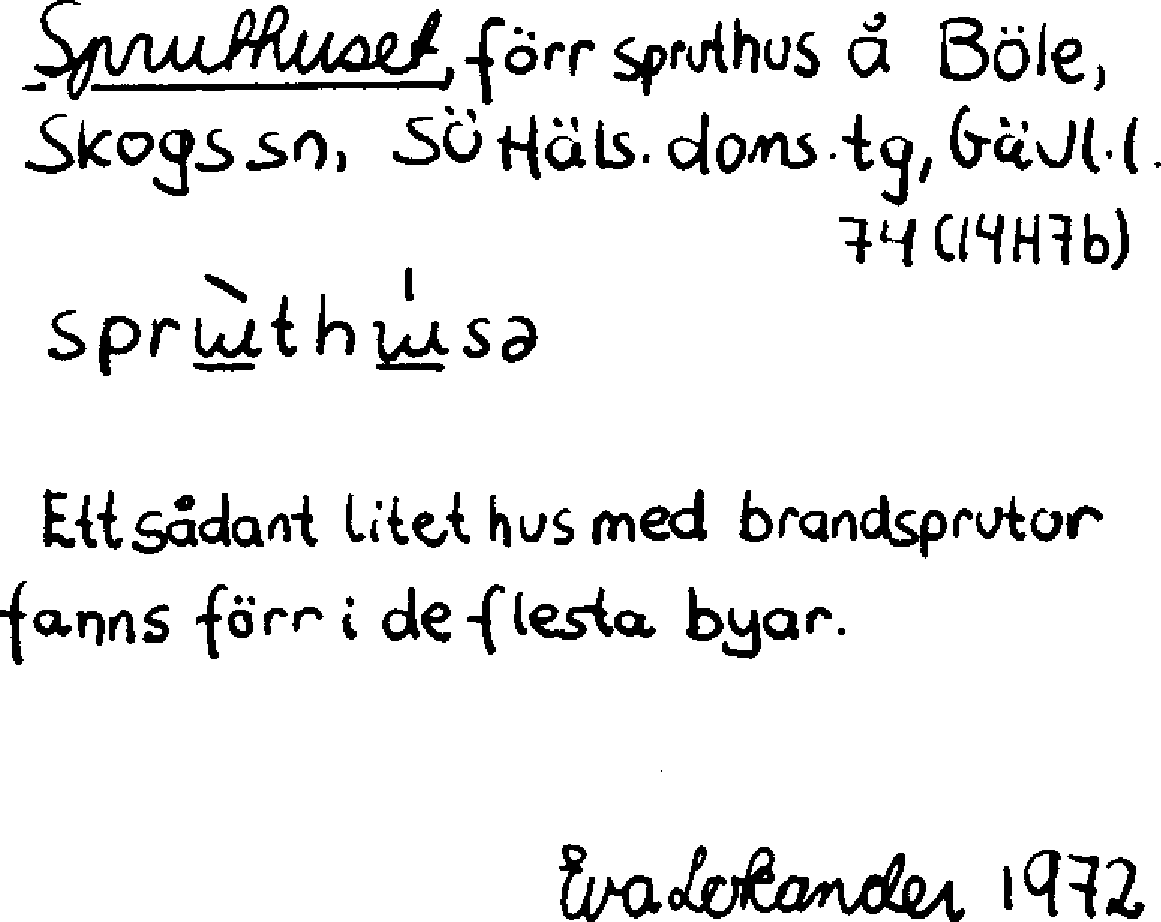 Spruthuset, förr spruthus å Böle,
Skogs sn, SÖ Häls. doms. tg, Gävl. l.
74 (14H7b)
sprɯ̱̀thɯ̱́sə
Ett sådant litet hus med brandsprutor
fanns förr i de flesta byar.
Eva 1972